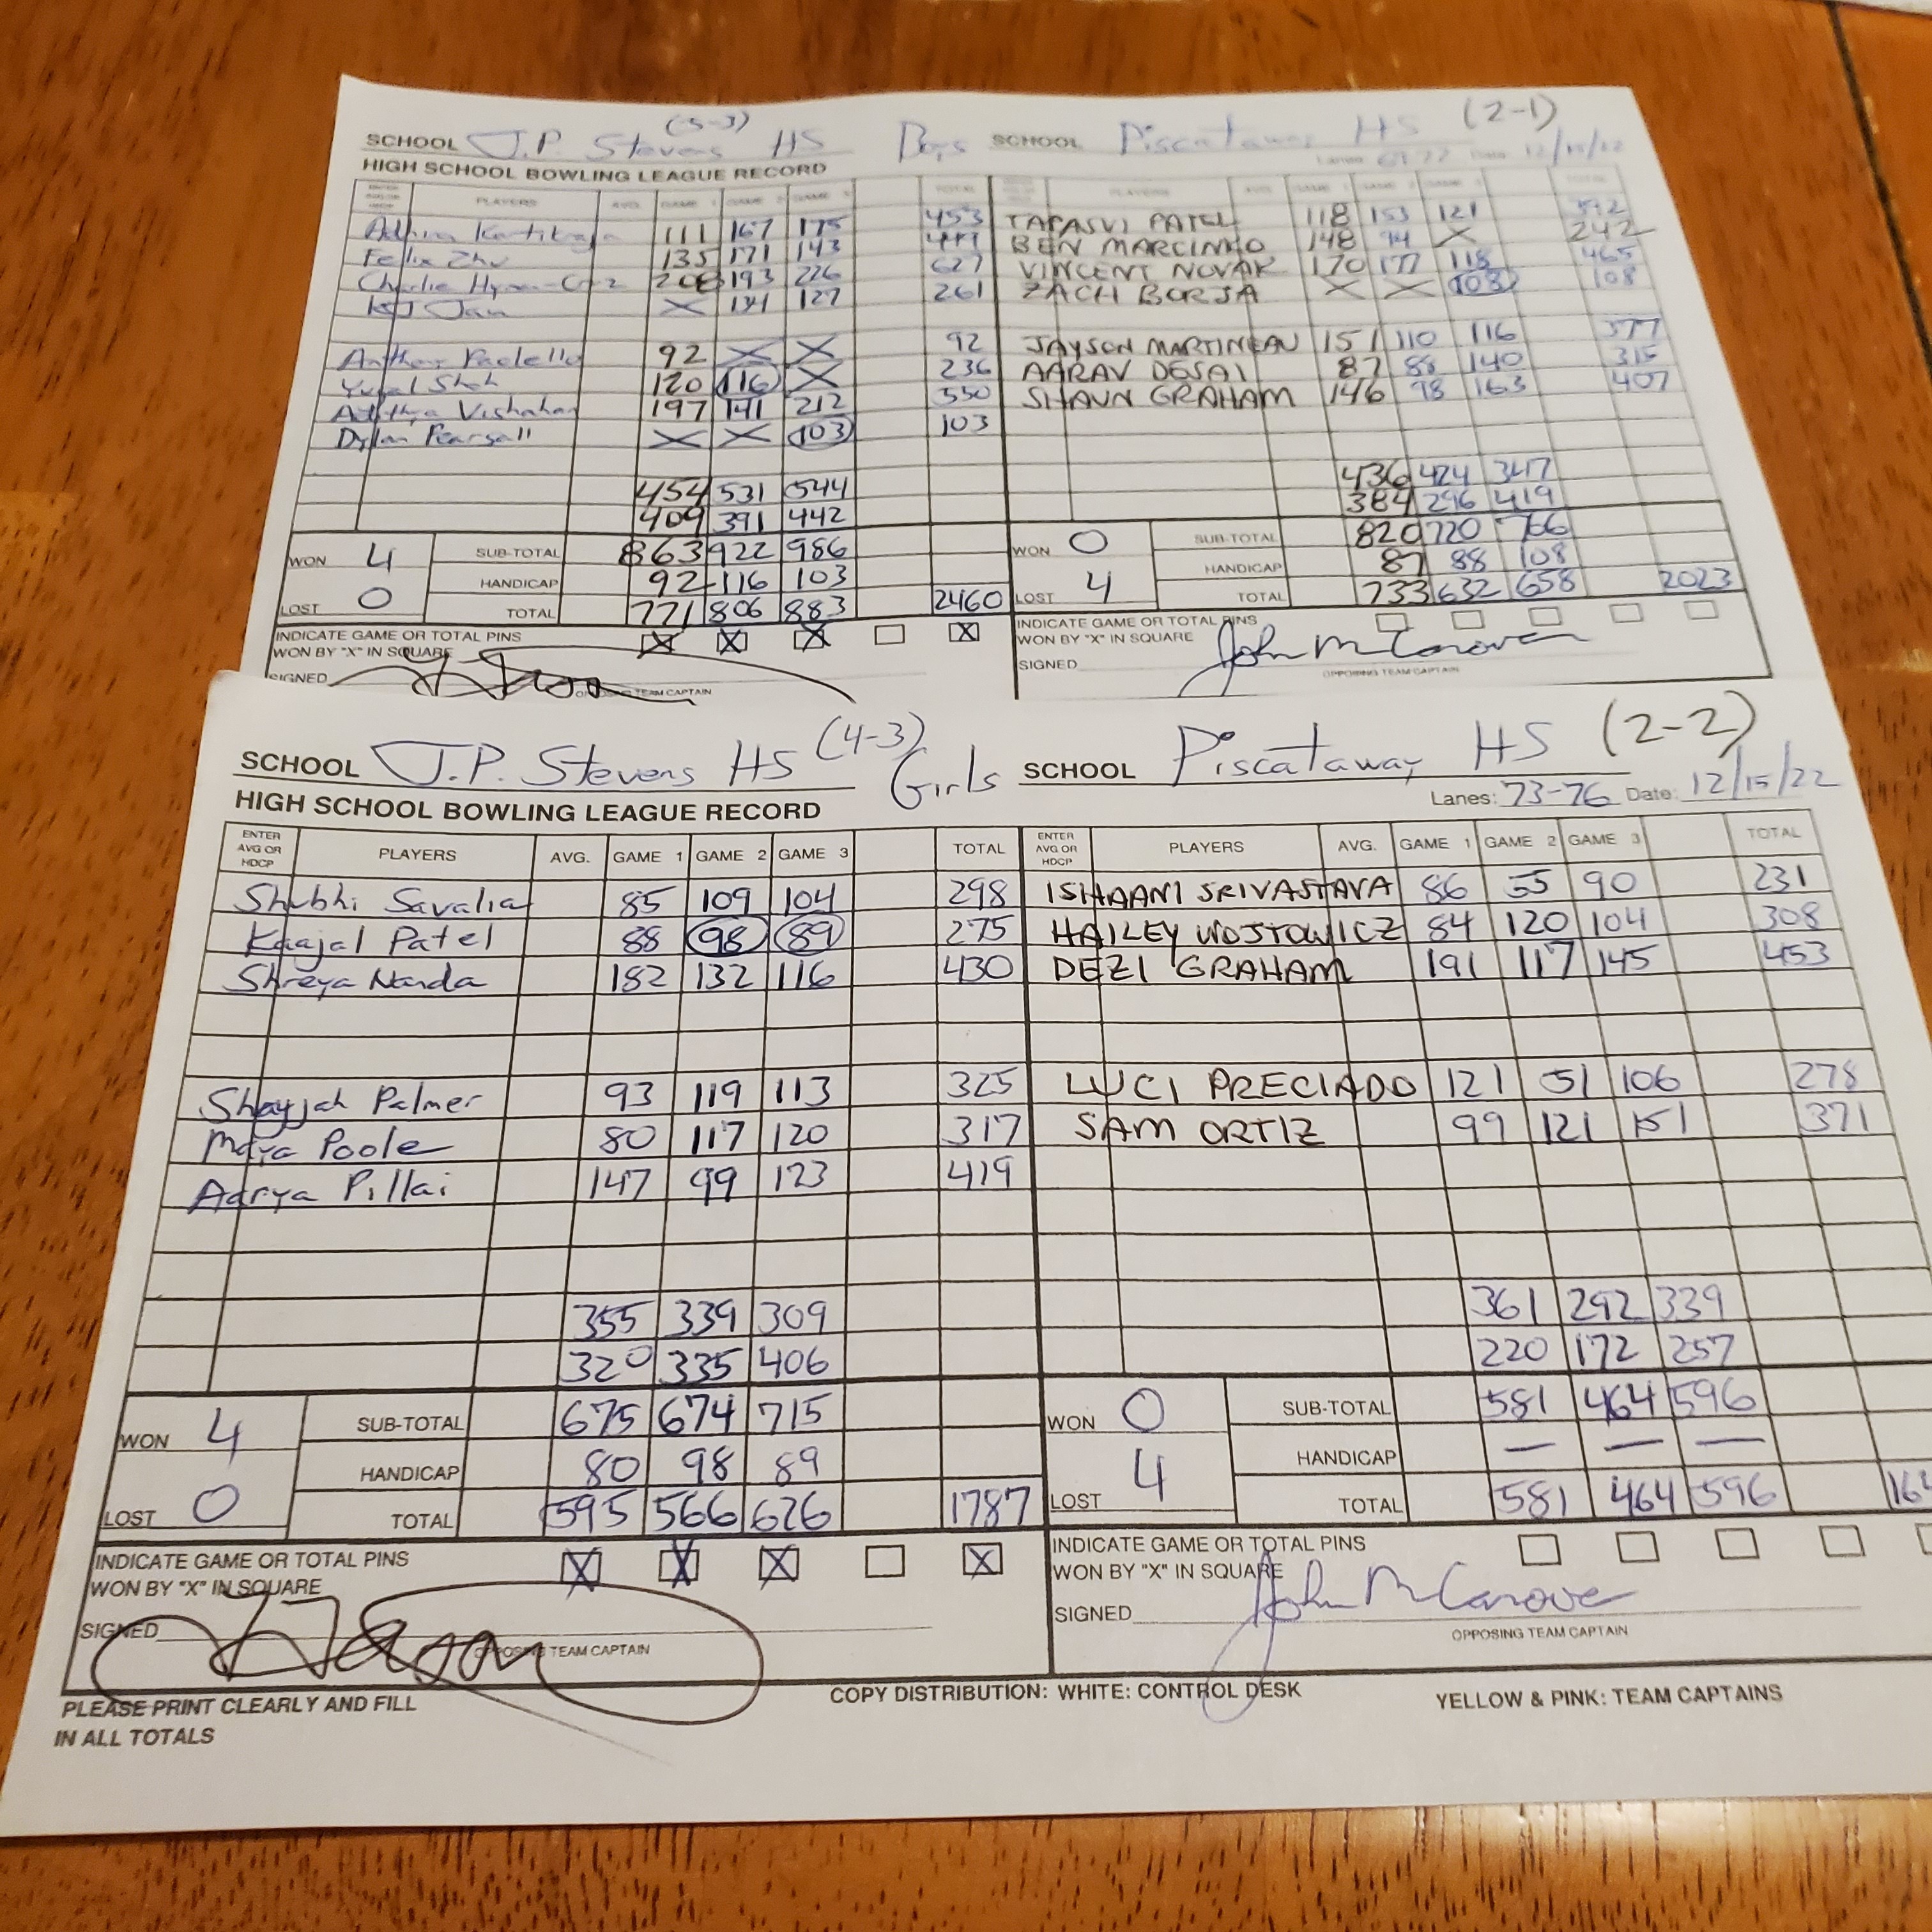 (5-3) (2-1)
SCHOOL J.P. Stevens HS Boys SCHOOL Piscataway HS
HIGH SCHOOL BOWLING LEAGUE RECORD Lanes: Date: 12/15/22
ENTER AVG OR HDCP PLAYERS AVG. GAME 1 GAME 2 GAME 3 TOTAL PLAYERS AVG. GAME 1 GAME 2 GAME 3 TOTAL
111 167 175 453 TAPASVI PATEL 118 153 121 392
Felix Zhu 135 171 143 449 BEN MARCINKO 148 94 X 242
Charlie 208 193 226 627 VINCENT NOVAK 170 177 118 465
X 134 127 261 ZACH BORJA X X 108 108
Anthony Paolello 92 X X 92 JAYSON MARTINEAU 151 110 116 377
Shah 120 116 X 236 AARAV DESAI 87 88 140 315
197 141 212 550 SHAUN GRAHAM 146 98 163 407
Dylan Pearsall X X 103 103
454 531 544 436 424 347
409 391 442 384 296 419
WON 4 SUB-TOTAL 863 922 986 WON 0 SUB-TOTAL 820 720 766
HANDICAP 92 116 103 HANDICAP 87 88 108
LOST 0 TOTAL 771 806 883 2460 LOST 4 TOTAL 733 632 658 2023
INDICATE GAME OR TOTAL PINS X X X X INDICATE GAME OR TOTAL PINS
WON BY "X" IN SQUARE WON BY "X" IN SQUARE
SIGNED SIGNED John M
OPPOSING TEAM CAPTAIN OPPOSING TEAM CAPTAIN
SCHOOL J.P. Stevens HS (4-3) Girls SCHOOL Piscataway HS (2-2)
HIGH SCHOOL BOWLING LEAGUE RECORD Lanes: 73-76 Date: 12/15/22
ENTER AVG OR HDCP PLAYERS AVG. GAME 1 GAME 2 GAME 3 TOTAL ENTER AVG OR HDCP PLAYERS AVG. GAME 1 GAME 2 GAME 3 TOTAL
Shubhi Savalia 85 109 104 298 ISHAANI SRIVASTAVA 86 55 90 231
Kaajal Patel 88 98 89 275 HAILEY WOJTOWICZ 84 120 104 308
Shreya Nanda 182 132 116 430 DEZI GRAHAM 191 117 145 453
Shayjah Palmer 93 119 113 325 LUCI PRECIADO 121 51 106 278
Maya Poole 80 117 120 317 SAM ORTIZ 99 121 151 371
Aarya Pillai 147 99 123 419
355 339 309 361 292 339
320 335 406 220 172 257
WON 4 SUB-TOTAL 675 674 715 WON 0 SUB-TOTAL 581 464 596
HANDICAP 80 98 89 HANDICAP — — —
LOST 0 TOTAL 595 566 626 1787 LOST 4 TOTAL 581 464 596 164
INDICATE GAME OR TOTAL PINS X X X X INDICATE GAME OR TOTAL PINS
WON BY "X" IN SQUARE WON BY "X" IN SQUARE
SIGNED SIGNED John M
OPPOSING TEAM CAPTAIN OPPOSING TEAM CAPTAIN
PLEASE PRINT CLEARLY AND FILL COPY DISTRIBUTION: WHITE: CONTROL DESK YELLOW & PINK: TEAM CAPTAINS
IN ALL TOTALS